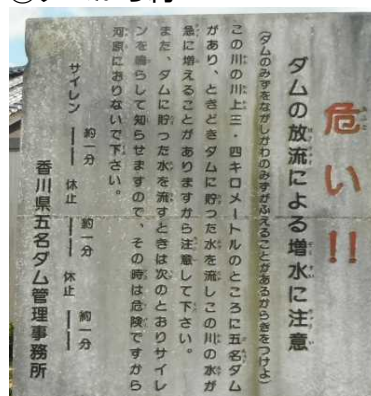 危い!!
ダムの放流による増水に注意
(ダムのみずをながしかわのみずがふえることがあるからきをつけよ)
この川の川上三・四キロメートルのところに五名ダム
があり、ときどきダムに貯った水を流しこの川の水が
急に増えることがありますから注意して下さい。
また、ダムに貯った水を流すときは次のとおりサイレ
ンを鳴らして知らせますので、その時は危険ですから
河原におりないで下さい。
サイレン 約一分 休止 約一分 休止 約一分
香川県五名ダム管理事務所